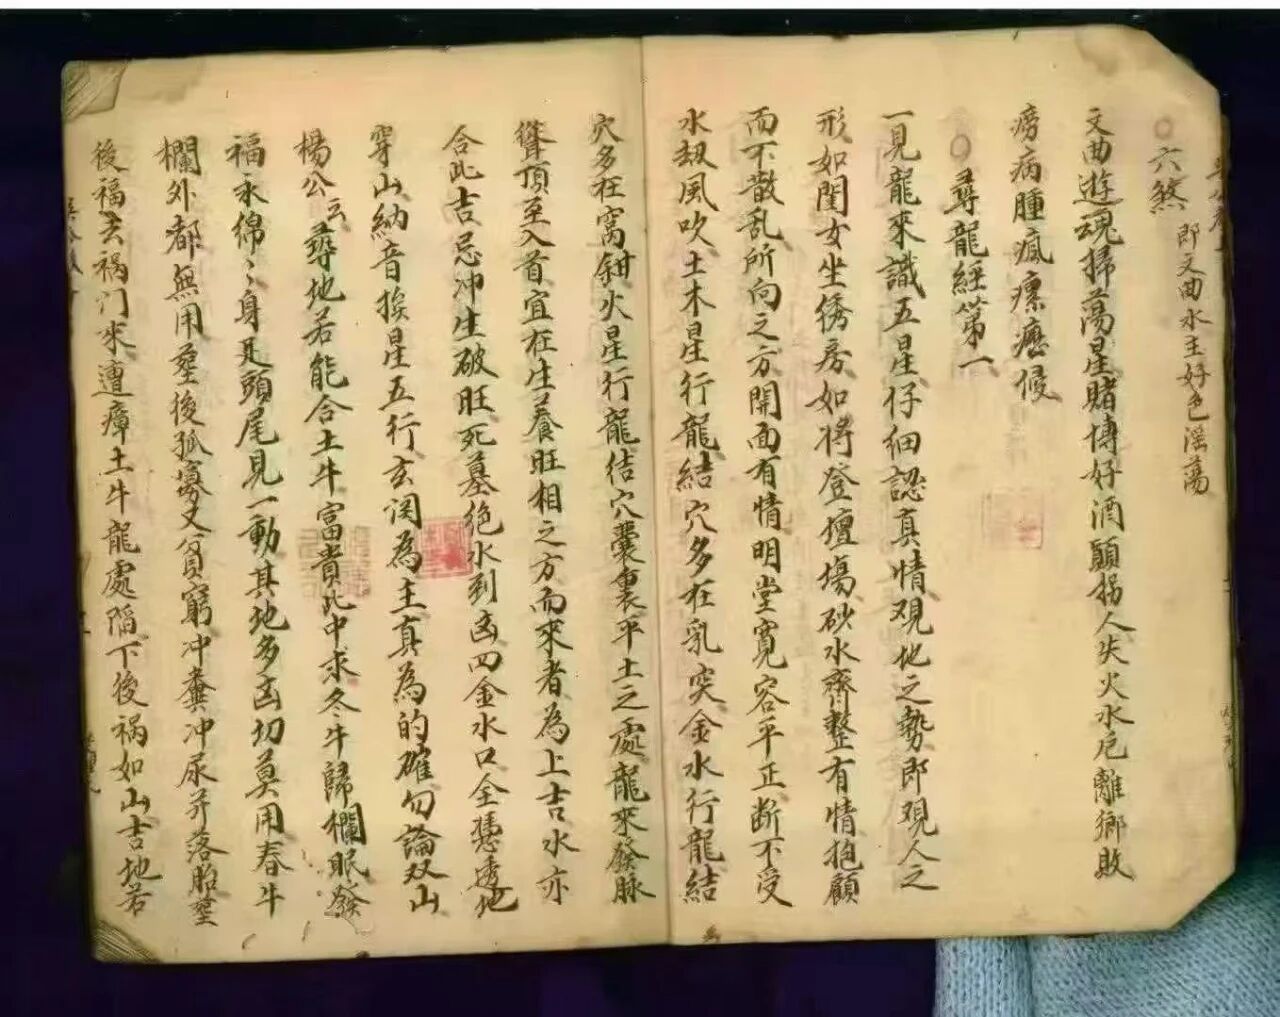 ○六煞
即文曲水主好色淫蕩
文曲遊魂掃蕩星賭博好酒顧拐人失火水厄離鄉敗
癆病腫瘋瘰癧侵
○尋龍經第一
一見龍來識五星仔細認真情观地之勢即观人之
形如閨女坐綉房如將登壇場砂水齊整有情抱顧
而不散乱所向之方開面有情明堂寬容平正断不受
水刼風吹土木星行龍結穴多在乳突金水行龍結
穴多在窩鉗火星行龍结穴囊裏平土之處龍來發脉
聳頂至入首宜在生養旺相之方而來者為上吉水亦
合此吉忌冲生破旺死墓绝水到凶四金水口全憑透地
穿山納音挨星五行玄関為主真為的確勿論双山
楊公云尋地若能合土牛富貴此中求冬牛歸欄眠發
福永綿〻身足頭尾見一動其地多凶切莫用春牛
欄外都無用塟後孤寡又貧窮冲糞冲尿并落胎塟
後福去祸门來遭瘴土牛龍處陷下後祸如山吉地若